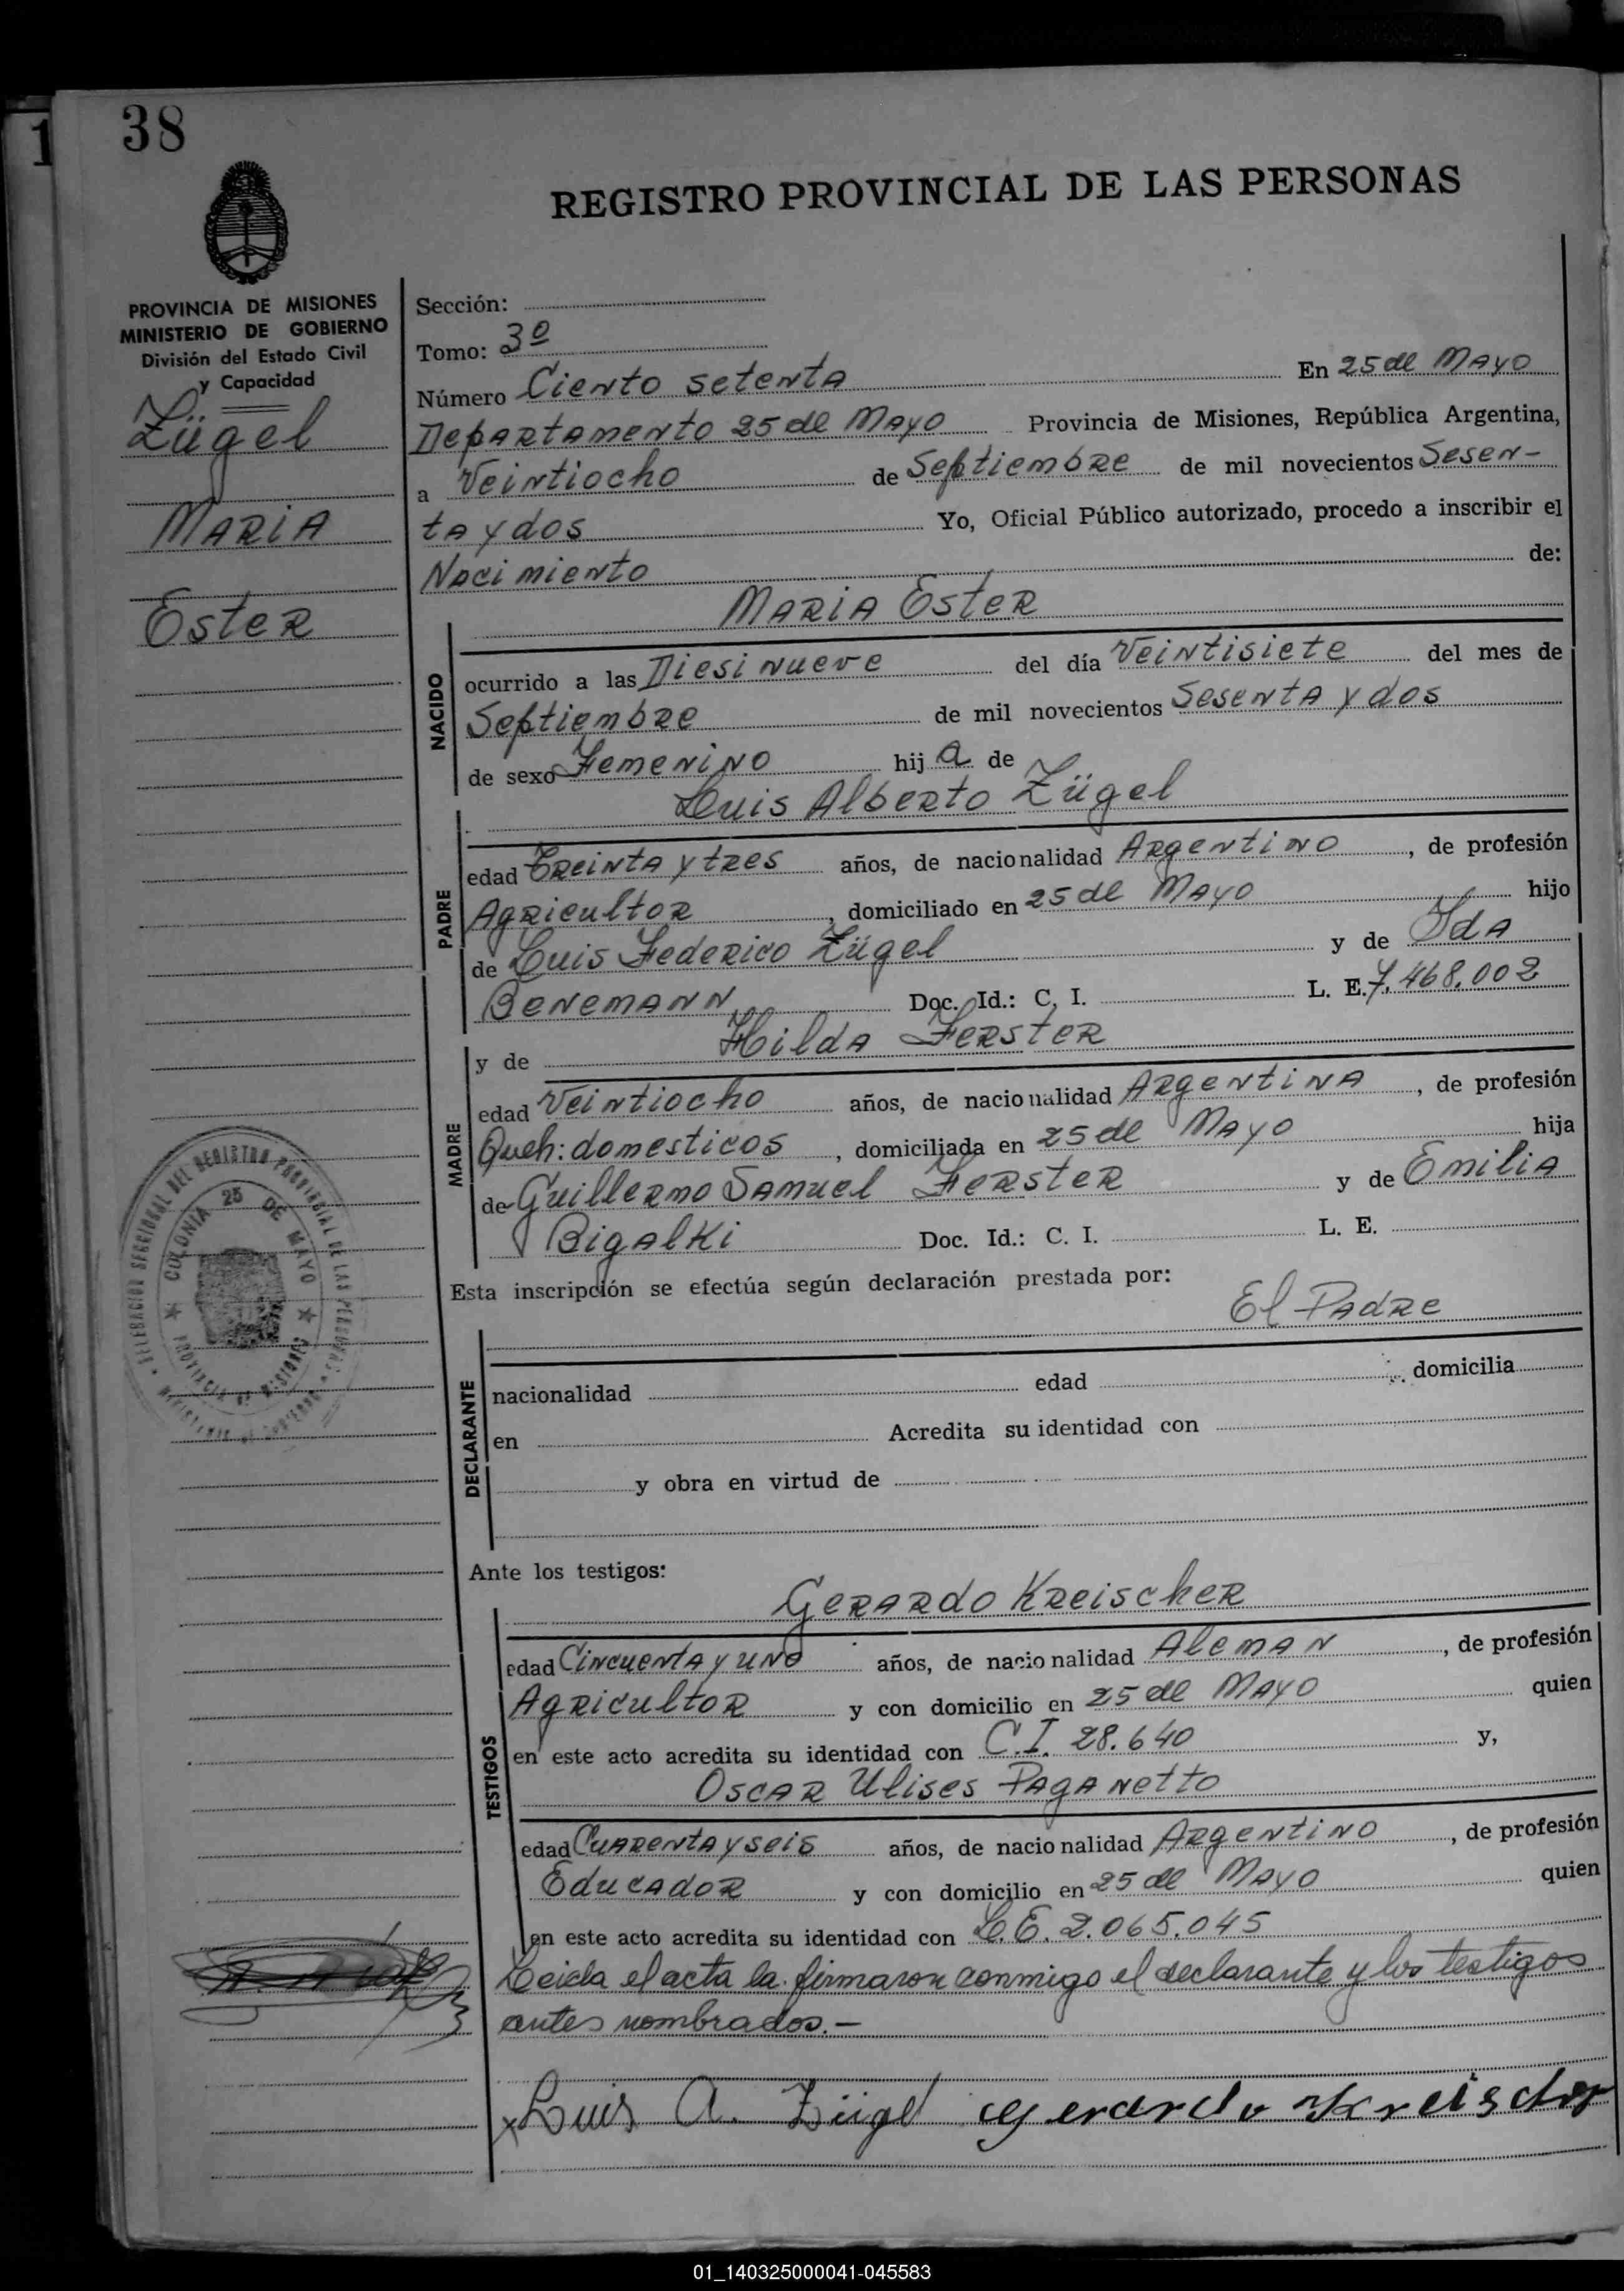 38
1
REGISTRO PROVINCIAL DE LAS PERSONAS
PROVINCIA DE MISIONES
MINISTERIO DE GOBIERNO
División del Estado Civil
y Capacidad
Zügel
MARIA
Ester
Sección:
Tomo: 3º
Número Ciento setenta En 25 de Mayo
Departamento 25 de Mayo Provincia de Misiones, República Argentina,
a Veintiocho de Septiembre de mil novecientos Sesen-
ta y dos Yo, Oficial Público autorizado, procedo a inscribir el
Nacimiento de:
MARIA Ester
NACIDO
ocurrido a las Diesinueve del día Veintisiete del mes de
Septiembre de mil novecientos Sesenta y dos
de sexo Femenino hija de
Luis Alberto Zügel
PADRE
edad Treinta y tres años, de nacionalidad Argentino, de profesión
Agricultor, domiciliado en 25 de Mayo hijo
de Luis Federico Zügel y de Ida
Benemann Doc. Id.: C. I. L. E. 7.468.002
y de Hilda Ferster
MADRE
edad Veintiocho años, de nacionalidad Argentina, de profesión
Queh: domesticos, domiciliada en 25 de Mayo hija
de Guillermo Samuel Ferster y de Emilia
Bigalki Doc. Id.: C. I. L. E.
DELEGACION SECCIONAL DEL REGISTRO PROVINCIAL DE LAS PERSONAS
COLONIA 25 DE MAYO
PROVINCIA DE MISIONES
Esta inscripción se efectúa según declaración prestada por:
El Padre
DECLARANTE
nacionalidad edad domicilia
en Acredita su identidad con
y obra en virtud de
Ante los testigos:
Gerardo Kreischer
TESTIGOS
edad Cincuenta y uno años, de nacionalidad Aleman, de profesión
Agricultor y con domicilio en 25 de Mayo quien
en este acto acredita su identidad con C.I. 28.640 y,
Oscar Ulises Paganetto
edad Cuarenta y seis años, de nacionalidad Argentino, de profesión
Educador y con domicilio en 25 de Mayo quien
en este acto acredita su identidad con L.E. 2.065.045
Leida el acta la firmaron conmigo el declarante y los testigos
antes nombrados.-
x Luis A. Zügel Gerardo Kreischer
01_140325000041-045583